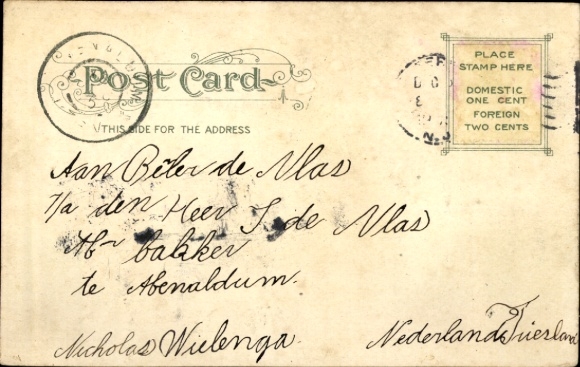 Post Card
THIS SIDE FOR THE ADDRESS
PLACE
STAMP HERE
DOMESTIC
ONE CENT
FOREIGN
TWO CENTS
DEC
8
N.J.
Aan Beler de Vlas
den Heer S. de Vlas
Mr bakker
te Menaldum.
Nicholas Wielenga.
Nederland Friesland